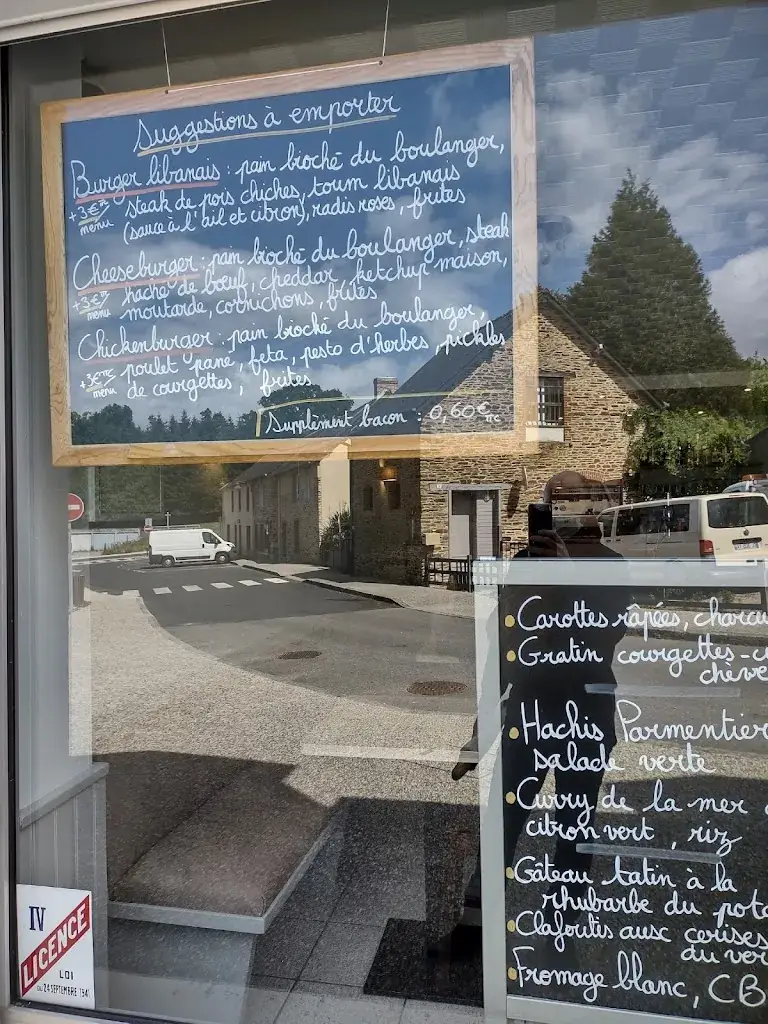 Suggestions à emporter
Burger libanais : pain bioché du boulanger,
steak de pois chiches, toum libanais
(sauce à l'ail et citron), radis roses, frites
+3€TTC
menu
Cheeseburger : pain bioché du boulanger, steak
haché de bœuf, cheddar, ketchup maison,
moutarde, cornichons, frites
+3€TTC
menu
Chickenburger : pain bioché du boulanger,
poulet pané, feta, pesto d'herbes, pickles
de courgettes, frites
+3€TTC
menu
Supplément bacon : 0,60€TTC
Carottes râpées, charcu
Gratin courgettes-c
chèv
Hachis Parmentier
salade verte
Curry de la mer
citron vert, riz
Gâteau tatin à la
rhubarbe du pota
Clafoutis aux cerises
du ver
Fromage blanc, CB
IV
LICENCE
LOI
DU 24 SEPTEMBRE 1941